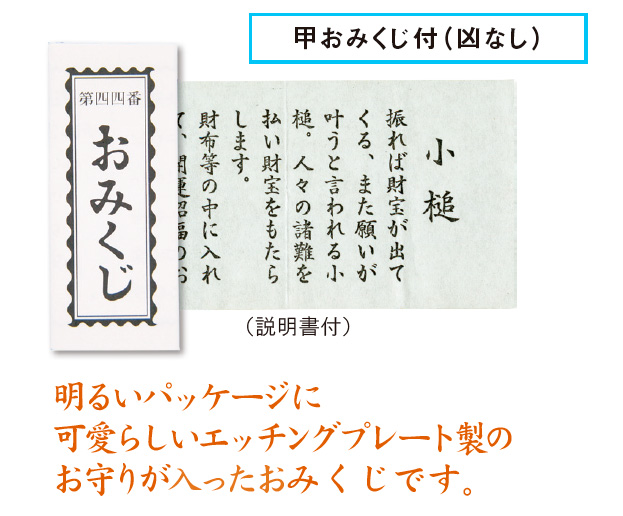 甲おみくじ付（凶なし）
第四四番
おみくじ
小槌
振れば財宝が出て
くる、また願いが
叶うと言われる小
槌。人々の諸難を
払い財宝をもたら
します。
財布等の中に入れ
て、開運招福のお
（説明書付）
明るいパッケージに
可愛らしいエッチングプレート製の
お守りが入ったおみくじです。